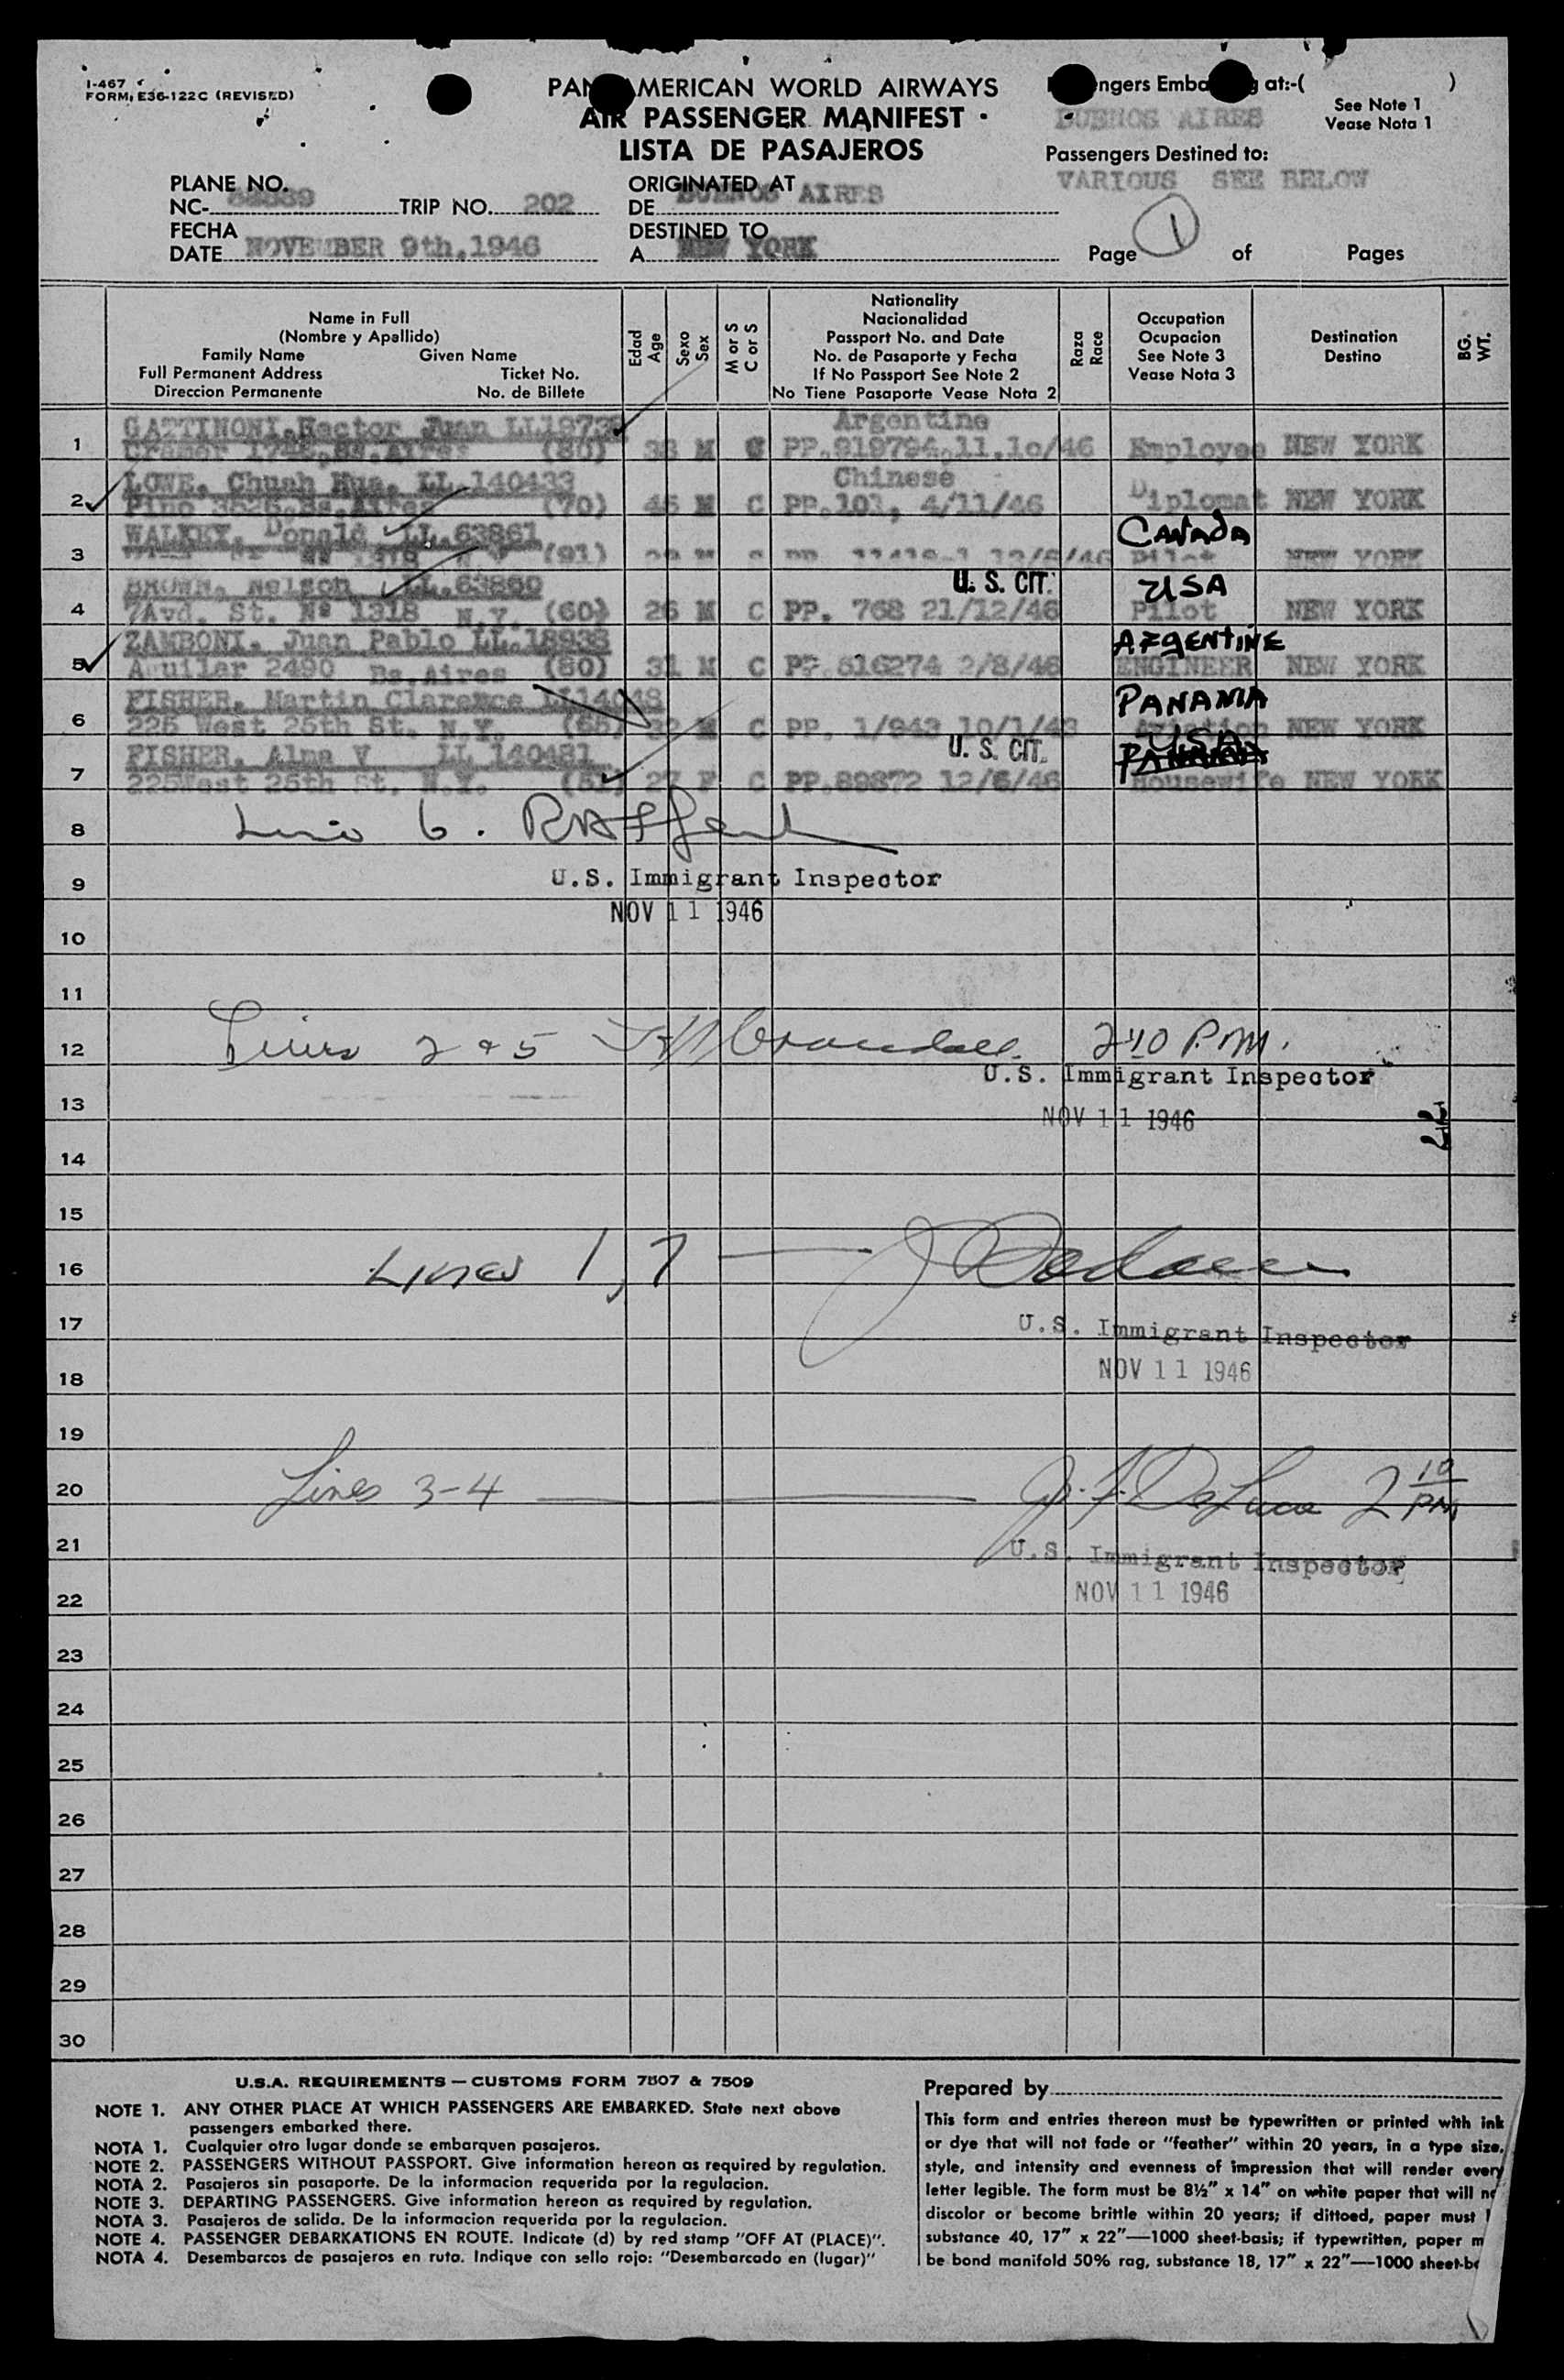 I-467
FORM E36-122C (REVISED)
PAN AMERICAN WORLD AIRWAYS
AIR PASSENGER MANIFEST
LISTA DE PASAJEROS
ngers Emba g at:-( )
See Note 1
Vease Nota 1
BUENOS AIRES
Passengers Destined to:
VARIOUS SEE BELOW
PLANE NO.
NC- TRIP NO. 202
FECHA
DATE NOVEMBER 9th,1946
ORIGINATED AT
DE BUENOS AIRES
DESTINED TO
A NEW YORK
Page 1 of Pages
Name in Full
(Nombre y Apallido)
Family Name Given Name
Full Permanent Address Ticket No.
Direccion Permanente No. de Billete
Edad
Age
Sexo
Sex
M or S
C or S
Nationality
Nacionalidad
Passport No. and Date
No. de Pasaporte y Fecha
If No Passport See Note 2
No Tiene Pasaporte Vease Nota 2
Raza
Race
Occupation
Ocupacion
See Note 3
Vease Nota 3
Destination
Destino
BG.
WT.
1 GATTINONI,Hector Juan Argentine
Cramer (80) 38 M PP.919794,11.10/46 Employee NEW YORK
2 LOWE, Chuah Hua, LL.140433 Chinese
Pino 3526,Bs.Aires (70) 45 M C PP.101, 4/11/46 Diplomat NEW YORK
3 WALKEY, Donald LL.63861 Canada
1318 (91) Pilot NEW YORK
4 BROWN, Nelson LL.63860 U. S. CIT. USA
7Avd. St. Nº 1318 N.Y. (60) 26 M C PP. 768 21/12/46 Pilot NEW YORK
5 ZAMBONI, Juan Pablo LL.18938 ARGENTINE
Aguilar 2490 Bs.Aires (80) 31 M C PP.616274 2/8/46 ENGINEER NEW YORK
6 FISHER, Martin Clarence LL14048 PANAMA
225 West 25th St. N.Y. (65) 32 M C PP. 1/943 10/1/43 Aviation NEW YORK
7 FISHER, Alma V LL 140481 U. S. CIT. USA PANAMA
225West 25th St. N.Y. (51) 27 F C PP.89872 12/6/46 Housewife NEW YORK
8
9 U.S. Immigrant Inspector
NOV 11 1946
10
11
12 Lines 2 & 5 Crandall 2 10 P.M.
U.S. Immigrant Inspector
13 NOV 11 1946
14
15
16 Lines 1, 7
17 U.S. Immigrant Inspector
18 NOV 11 1946
19
20 Lines 3-4 J. F. DeLuca 2 10 PM
21 U.S. Immigrant Inspector
22 NOV 11 1946
23
24
25
26
27
28
29
30
U.S.A. REQUIREMENTS — CUSTOMS FORM 7507 & 7509
NOTE 1. ANY OTHER PLACE AT WHICH PASSENGERS ARE EMBARKED. State next above
passengers embarked there.
NOTA 1. Cualquier otro lugar donde se embarquen pasajeros.
NOTE 2. PASSENGERS WITHOUT PASSPORT. Give information hereon as required by regulation.
NOTA 2. Pasajeros sin pasaporte. De la informacion requerida por la regulacion.
NOTE 3. DEPARTING PASSENGERS. Give information hereon as required by regulation.
NOTA 3. Pasajeros de salida. De la informacion requerida por la regulacion.
NOTE 4. PASSENGER DEBARKATIONS EN ROUTE. Indicate (d) by red stamp "OFF AT (PLACE)".
NOTA 4. Desembarcos de pasajeros en ruta. Indique con sello rojo: "Desembarcado en (lugar)"
Prepared by
This form and entries thereon must be typewritten or printed with ink
or dye that will not fade or "feather" within 20 years, in a type size,
style, and intensity and evenness of impression that will render every
letter legible. The form must be 8½" x 14" on white paper that will no
discolor or become brittle within 20 years; if dittoed, paper must
substance 40, 17" x 22"—1000 sheet-basis; if typewritten, paper m
be bond manifold 50% rag, substance 18, 17" x 22"—1000 sheet-b